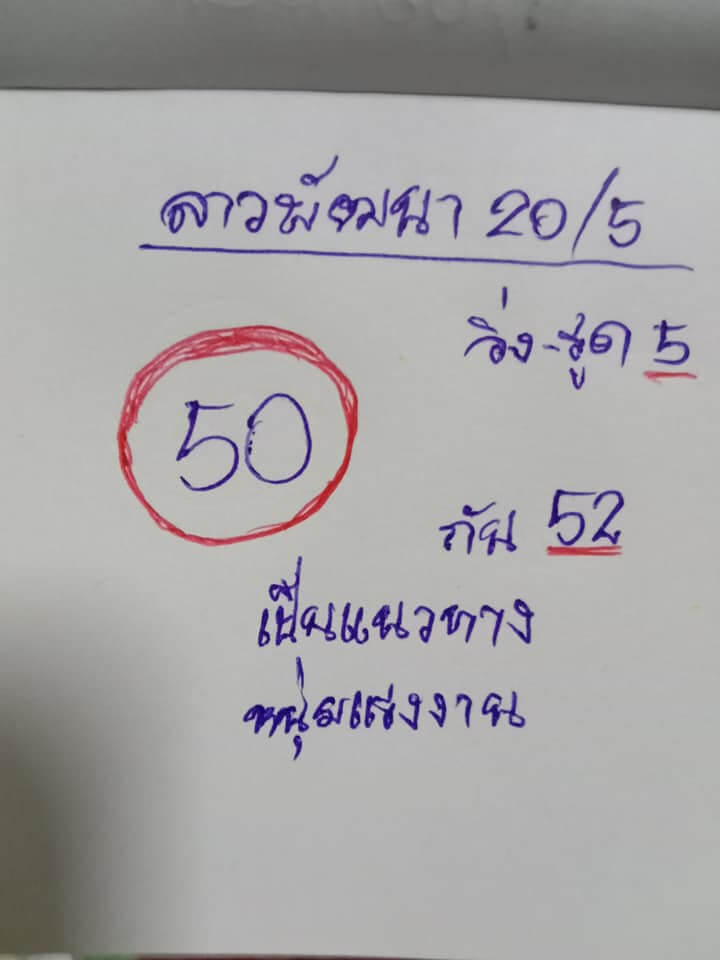 ลาวพัฒนา 20/5
วิ่ง-รูด 5
50
กัน 52
เป็นแนวทาง
หนุ่มแรงงาน